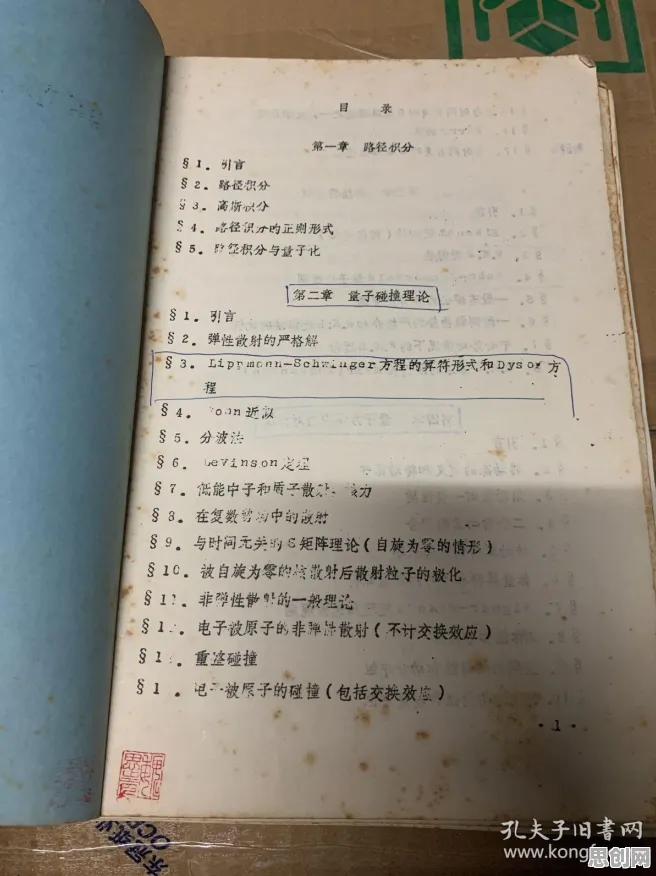 目 录
第一章 路径积分
§1. 引言
§2. 路径积分
§3. 高斯积分
§4. 路径积分的正则形式
§5. 路径积分与量子化
第二章 量子碰撞理论
§1. 引言
§2. 弹性散射的严格解
§3. Lippmann-Schwinger方程的算符形式和Dyson方
程
§4. 近似
§5. 分波法
§6. Levinson定理
§7. 低能中子和质子散射 核力
§8. 在复数势场中的散射
§9. 与时间无关的S矩阵理论(自旋为零的情形)
§10. 被自旋为零的核散射后散射粒子的极化
§11. 非弹性散射的一般理论
§1 . 电子被原子的非弹性散射(不计交换效应)
§1 . 重粒碰撞
§1 . 电子被原子的碰撞(包括交换效应)
·1·
孔夫子旧书网
www.kongf
思创网